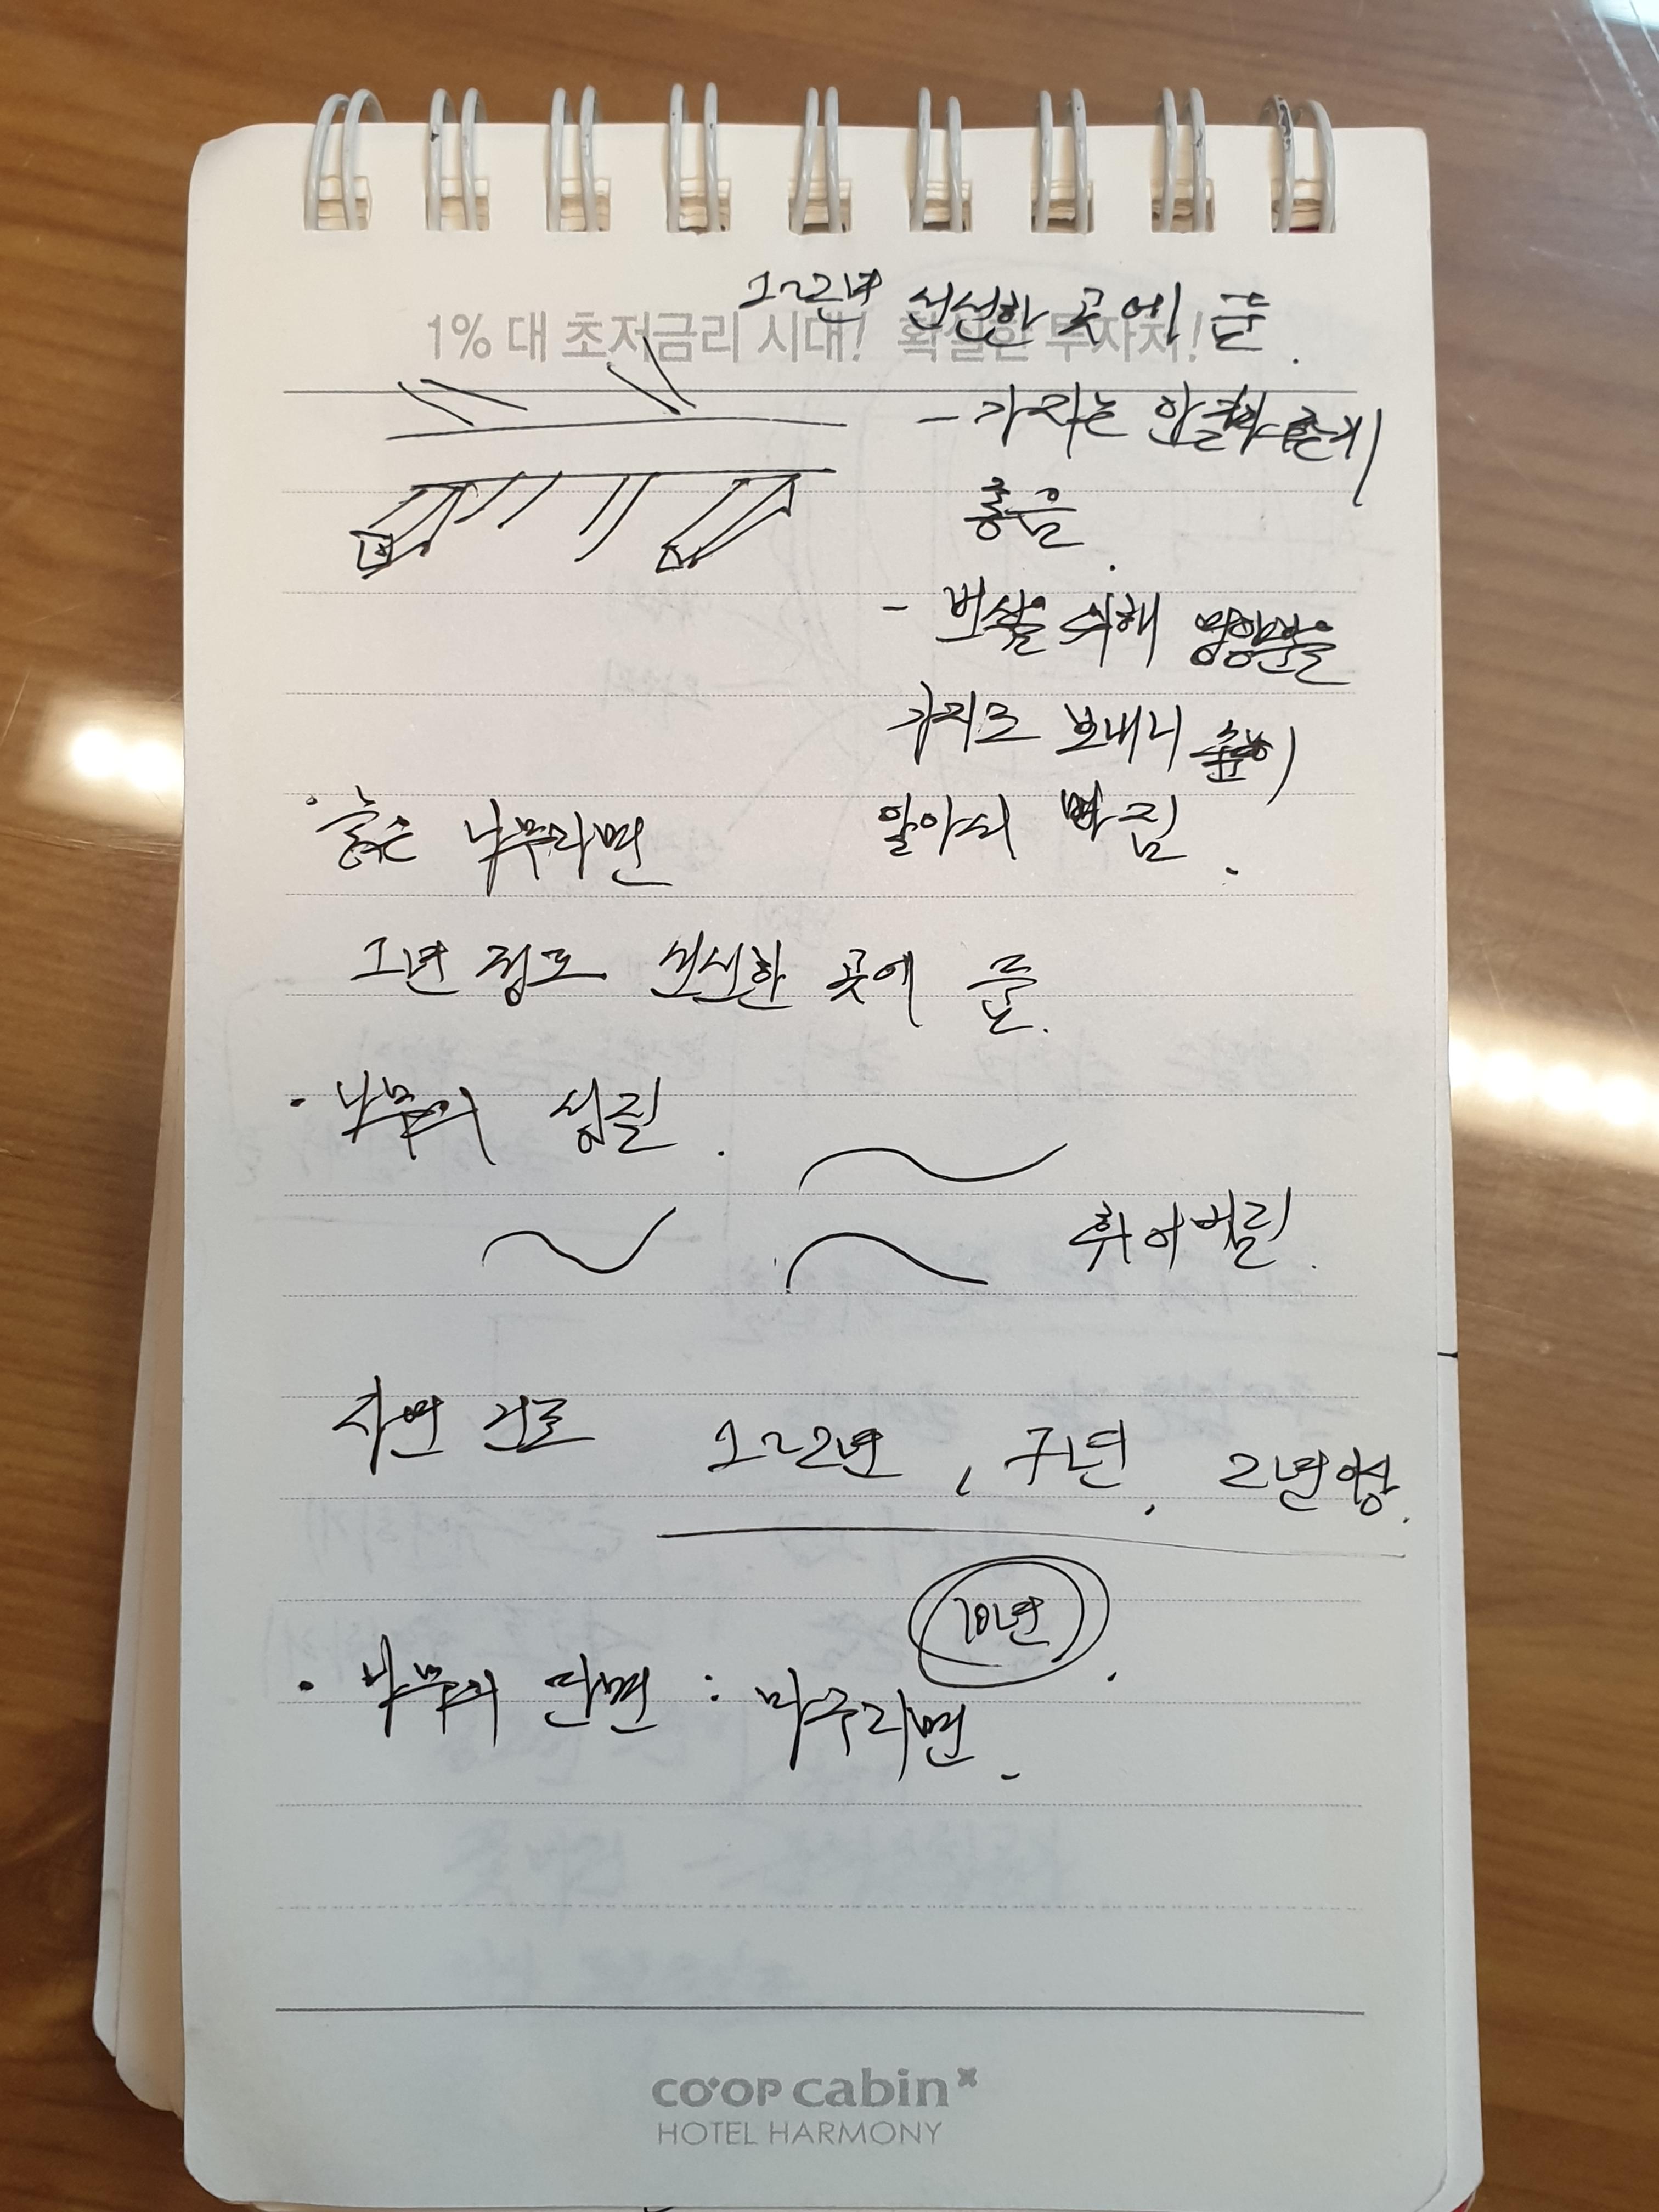 1~2년 선선한 곳에 둠.
1%대 초저금리 시대! 확실한 투자처!
- 가지는 안
좋음.
- 버섯을 위해 영양분을
가지로 보내니
알아서 빠짐.
· 굵은 나무라면
1년 정도 선선한 곳에 둠.
· 나무의 성질.
휘어버림.
자연 건조 1~2년, 7년, 2년 이상.
10년.
· 나무의 단면 : 마구리면.
CO·OP cabin
HOTEL HARMONY